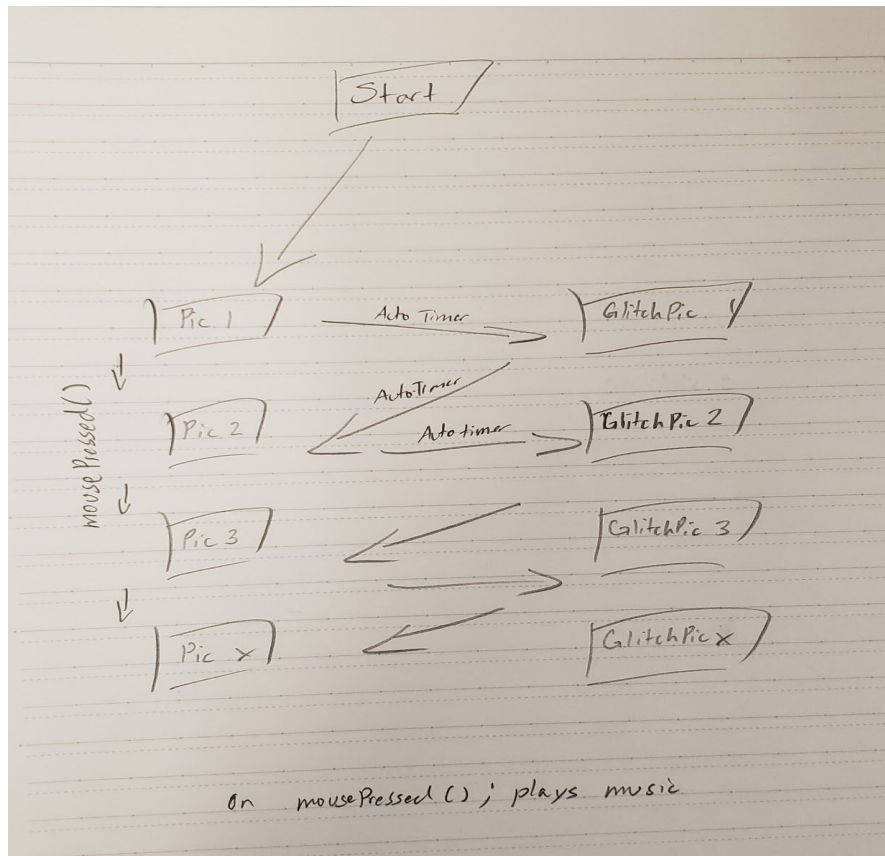 Start
Pic 1
Auto Timer
GlitchPic 1
mousePressed()
AutoTimer
Pic 2
Autotimer
GlitchPic 2
Pic 3
GlitchPic 3
Pic x
GlitchPic x
on mousePressed(); plays music